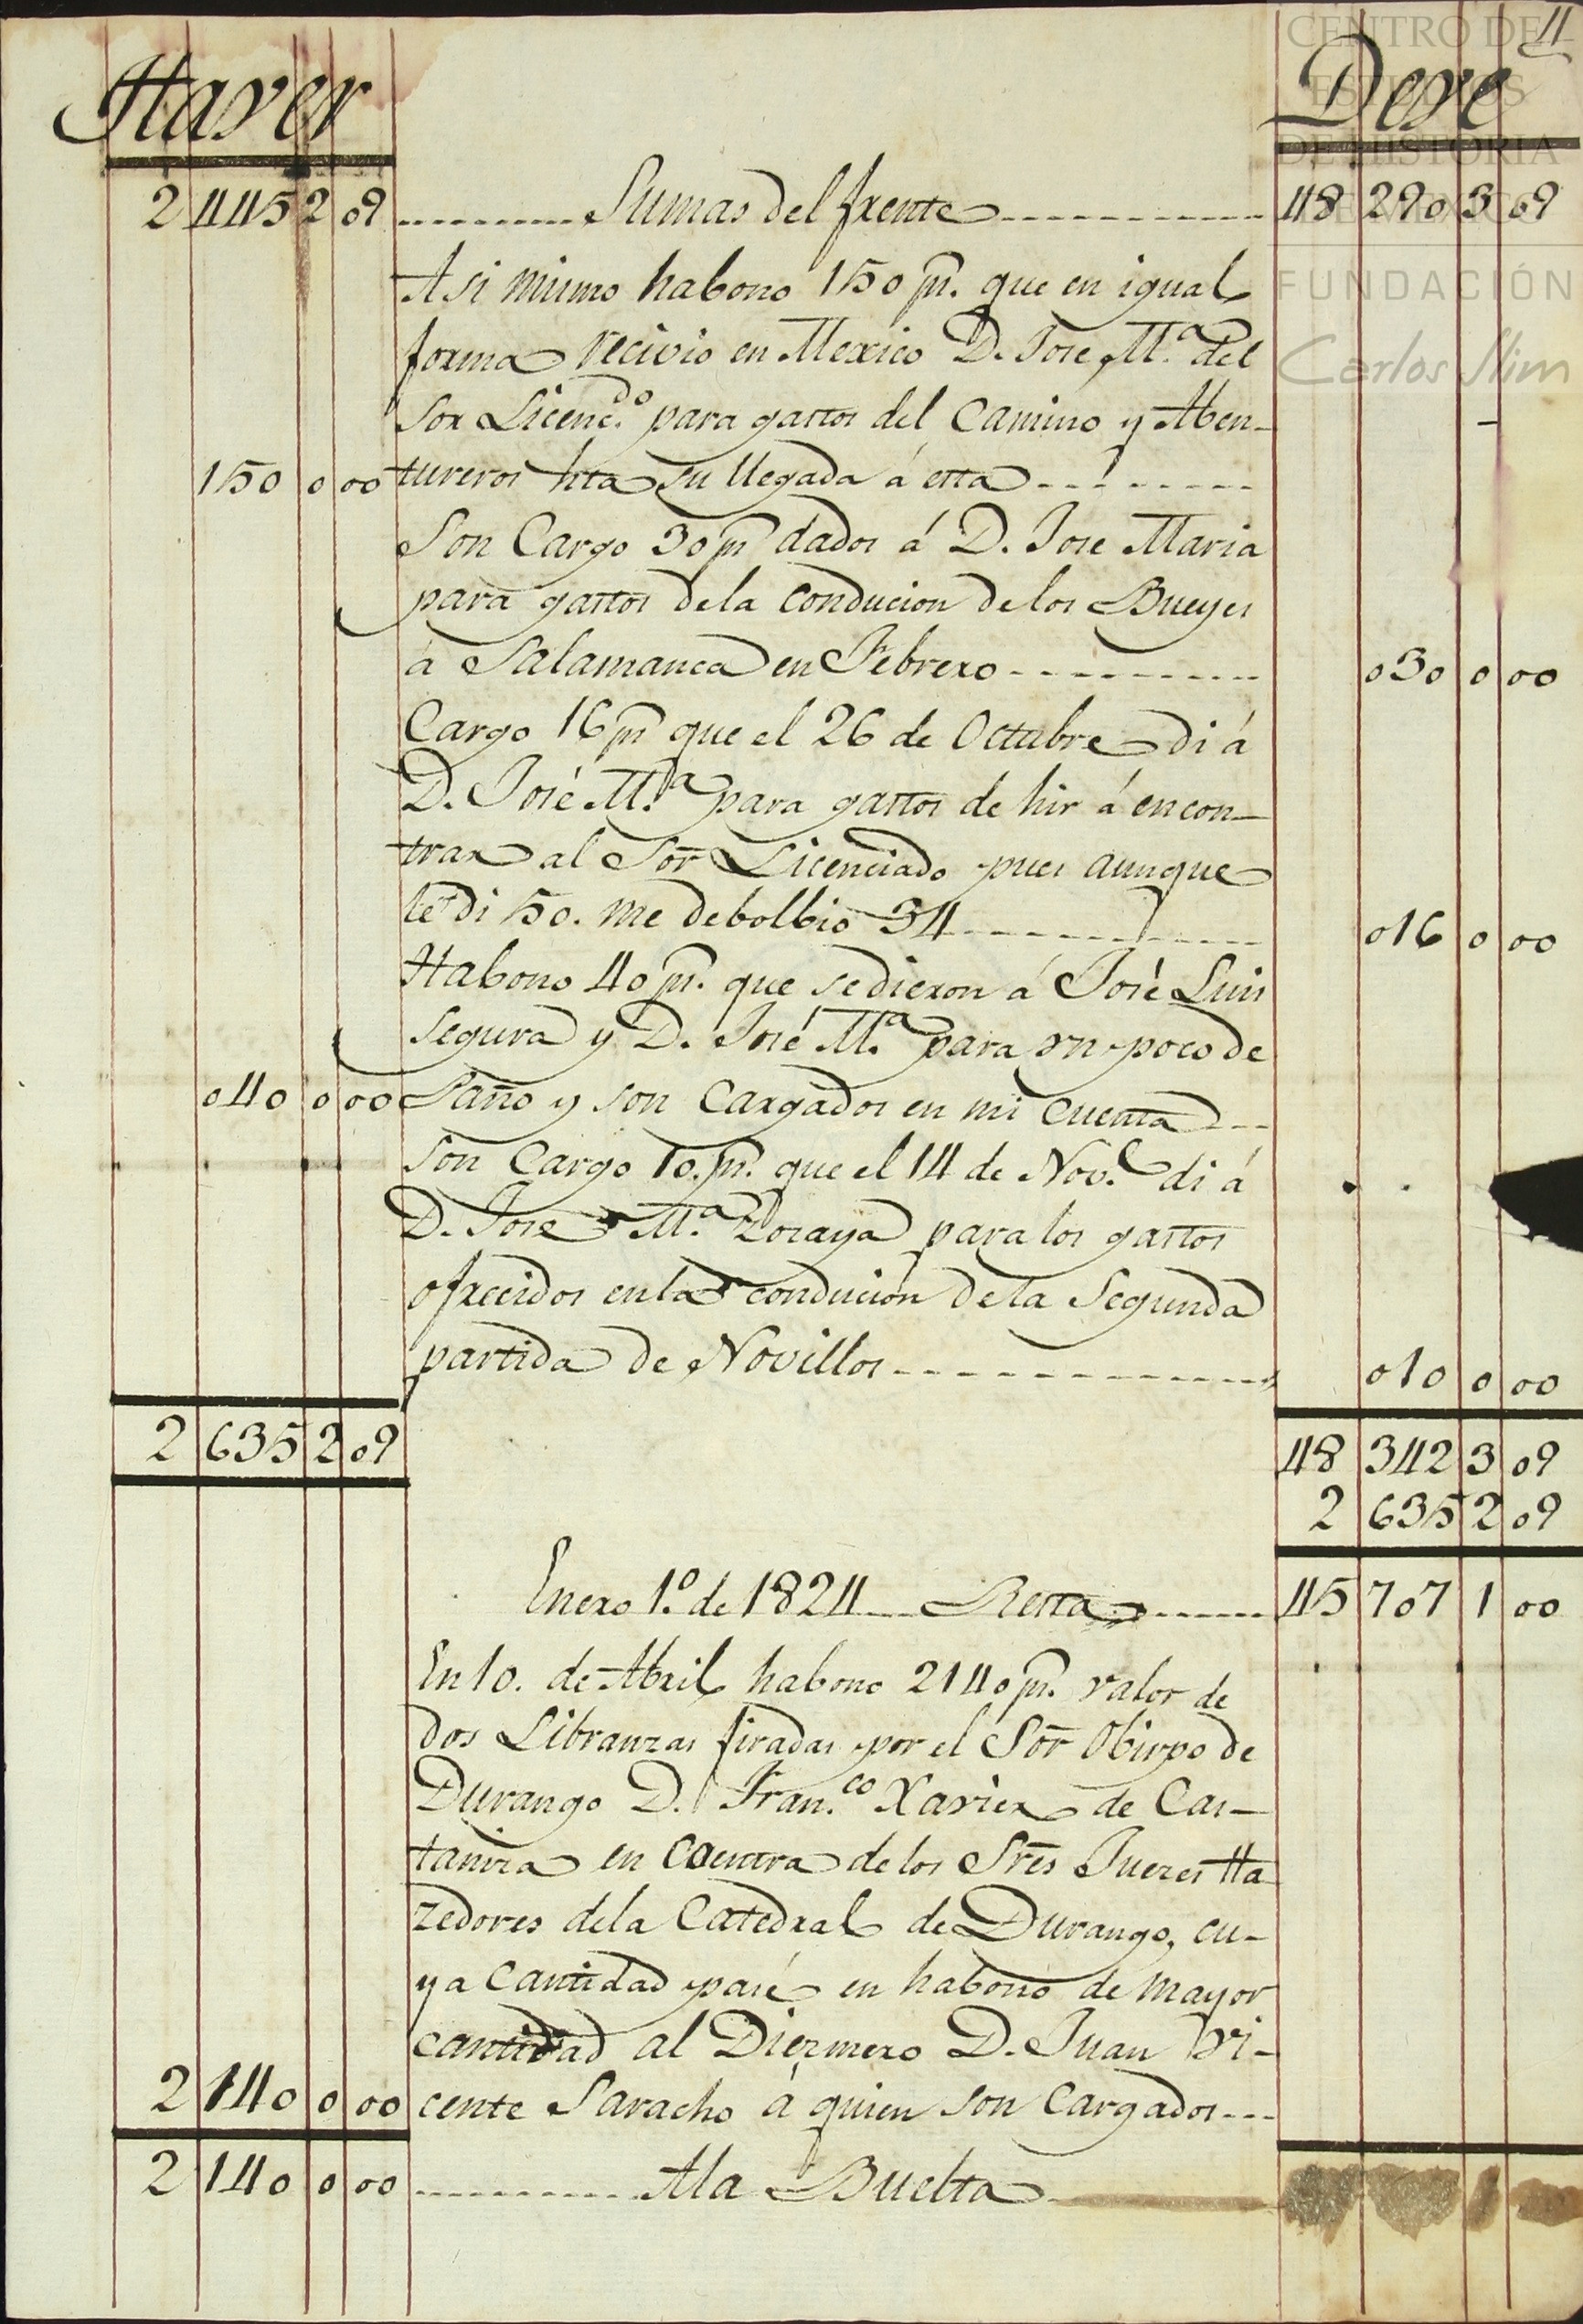 11
Haver
Deve
2 445 2 09 Sumas del frente 48 290 3 09
Asi mismo habono 150 ps. que en igual
forma recivio en Mexico D. Jose Ma. del
Sor Licencdo. para gastos del Camino y Aben-
150 0 00 tureros hta su llegada á esta
Son Cargo 30 ps dados á D. Jose Maria
para gastos dela conducion delos Bueyes
a Salamanca en Febrero 030 0 00
Cargo 16 ps que el 26 de Octubre di á
D. José Ma. para gastos de hir á encon-
trar al Sor Licenciado pues aunque
le di 50. me debolbió 34 016 0 00
Habono 40 ps. que se dieron á José Luis
Segura y D. José Ma. para vn poco de
040 0 00 Paño y son Cargados en mi Cuenta
Son Cargo 10. ps. que el 14 de Nove. di á
D. Jose Ma. Lozaya para los gastos
ofrecidos en la conducion dela Segunda
partida de Novillos 010 0 00
2 635 2 09 48 342 3 09
2 635 2 09
Enero 1o. de 1824 Resta 45 707 1 00
En 10. de Abril habono 2140 ps. valor de
dos Libranzas firadas por el Sor Obispo de
Durango D. Franco. Xavier de Cas-
taniza en Cuentra de los Sres Juezes Ha
zedores dela Catedral de Durango, cu-
ya Cantidad pasé en habono de mayor
cantidad al Diezmero D. Juan Vi-
2 140 0 00 cente Saracho á quien son Cargados
2 140 0 00 Ala Buelta
CENTRO DE
ESTUDIOS
DE HISTORIA
DE MÉXICO
FUNDACIÓN
Carlos Slim